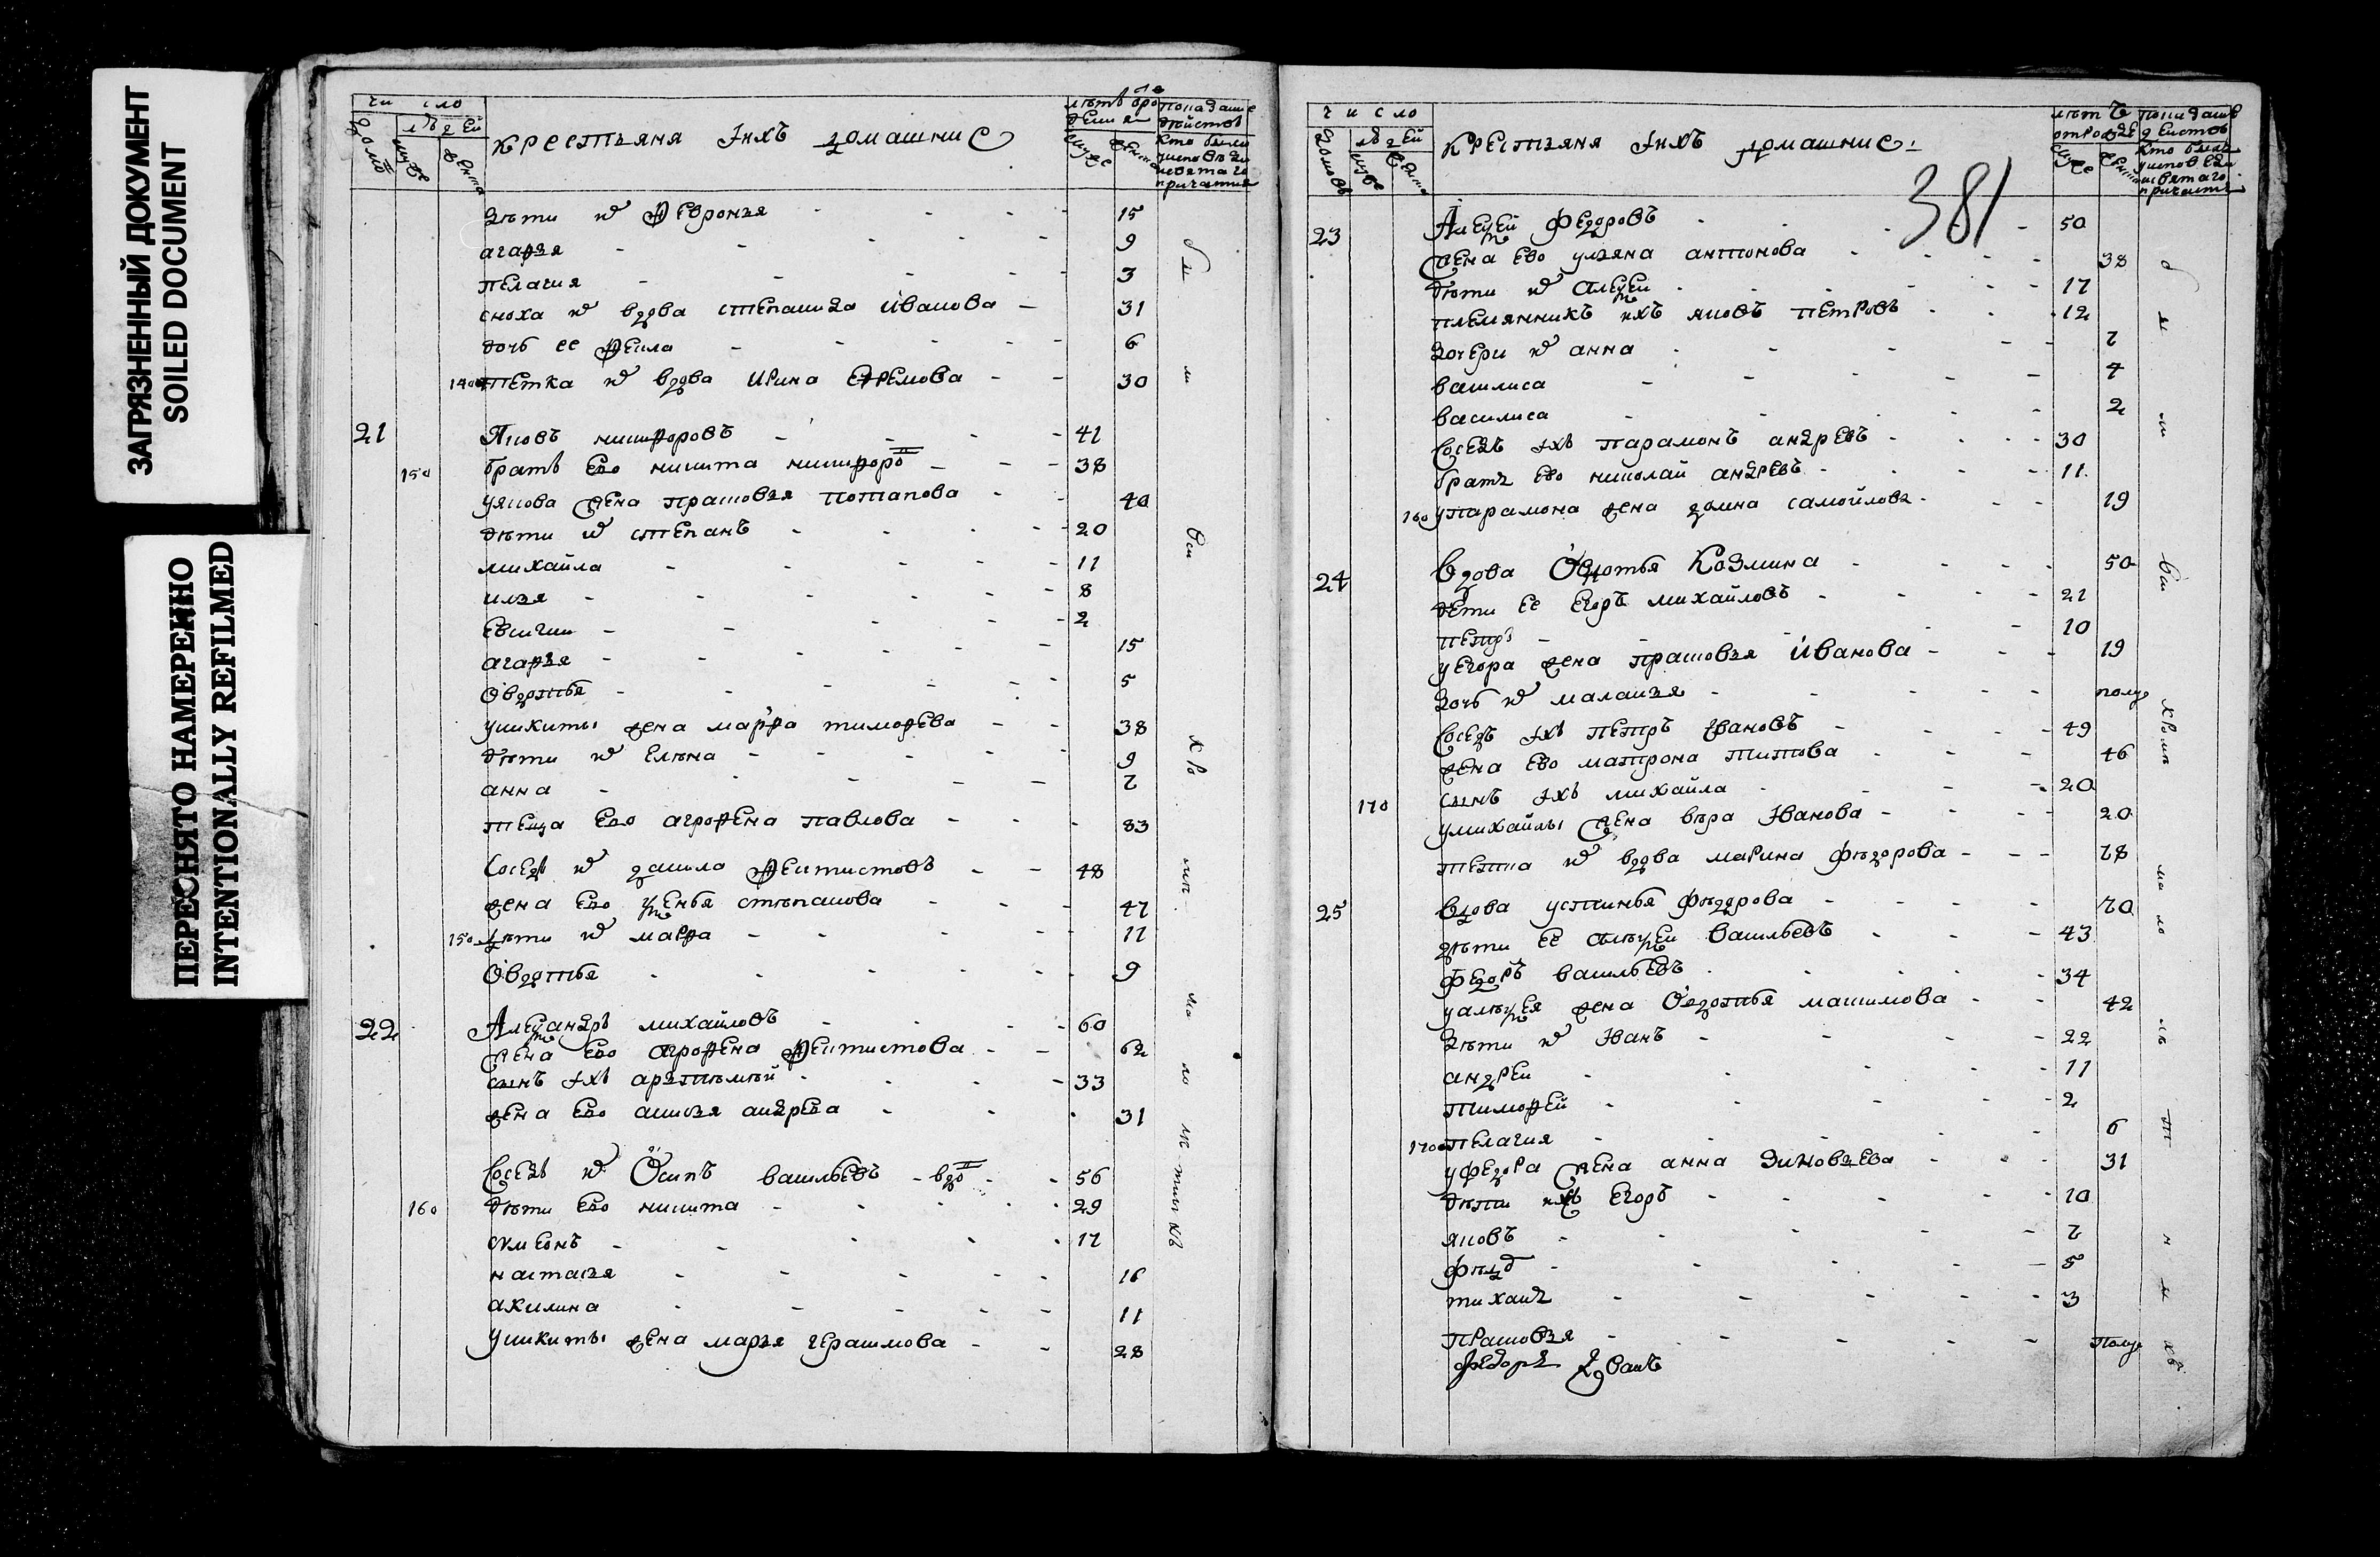 ЗАГРЯЗНЕННЫЙ ДОКУМЕНТ
SOILED DOCUMENT
ПЕРЕСНЯТО НАМЕРЕННО
INTENTIONALLY REFILMED
число
людей
крестьяня Iихъ домашние
дѣти их Февронья 15
агафья 9
пелагия 3
сноха их вдова степанида иванова 31
дочь ее Фекла 6
тетка их вдова ирина Ефремова 30
21 Яковъ никифоровъ 41
150 братъ Ево никита никифоро 38
уякова жена прасковья потапова 40
дѣти их степанъ 20
михайла 11
илья 8
Евсигни 2
агафья 15
Овдотья 5
уникиты жена марфа тимофева 38
дѣти их Елѣна 9
анна 7
теща Ево агрофена павлова 83
Соседъ их данила Фектистовъ 48
жена Ево ксенья стѣпанова 47
150 дѣти их марфа 11
Овдотья 9
22 Александръ михайловъ 60
жена Ево агрофена Фектистова 62
сынъ Iхъ артѣмѣй 33
жена Ево аксинья андрева 31
Соседъ их Осипъ васильевъ вдо 56
160 дѣти Ево никита 29
симеонъ 17
настасья 16
акилина 11
уникиты жена марья герасимова 28
число
людей
крестьяня Iихъ домашние
381
23 Алексей Федоровъ 50
жена Ево ульяна антонова 38
дѣти их алексей 17
племянникъ ихъ яковъ петровъ 12
дочери их анна 7
василиса 4
василиса 2
Соседъ Iхъ парамонъ андревъ 30
братъ Ево николай андревъ 11
160 упарамона жена домна самойлова 19
24 Вдова Овдотья Козмина 50
дети Ее Егоръ михайловъ 21
петръ 10
уегора жена прасковья Иванова 19
дочь их маланья полуг
Соседъ Iхъ петръ Ивановъ 49
жена Ево матрона титова 46
170 сынъ Iхъ михайла 20
умихайлы жена вѣра Iванова 20
тетка их вдова марина фѣдорова 78
25 Вдова устинья фѣдорова 70
дѣти Ее алѣксѣй васильевъ 43
федоръ васильевъ 34
уалѣксѣя жена Овдотья максимова 42
дѣти их Iванъ 22
андрей 11
тимофей 2
170 пелагия 6
уфедора жена анна Зиновьева 31
дѣти ихъ Егоръ 10
яковъ 7
фѣд 5
тихан 3
прасковья полуг